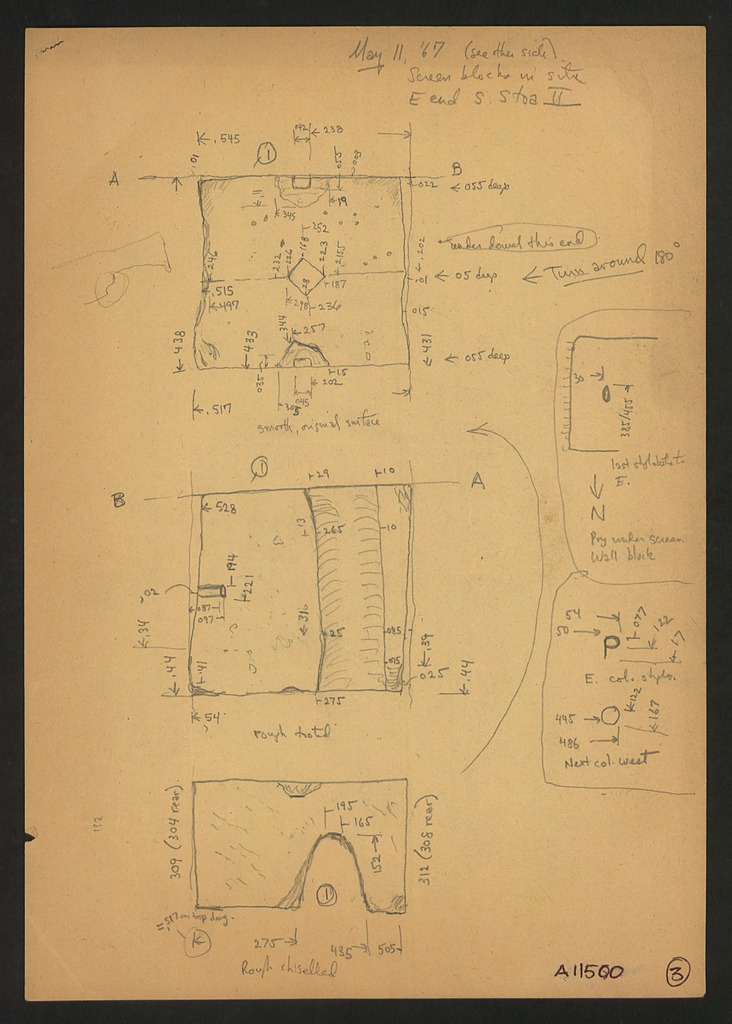 May 11, '67 (see other side)
Screen blocks in situ
E end S. Stoa II
.545
.092
238
1
.01
055
.03
A
B
.022
055 deep
.11
.345
19
252
168
.202
under dowel this end
.246
232
226
223
2155
.01
05 deep
Turn around 180°
28
187
.515
.497
298
236
015
.344
257
.438
.433
.431
055 deep
035
15
045
202
.517
smooth, original surface
35
385/455
last stylobate to
E.
N
Pry under screen
wall block
1
29
10
B
A
.528
13
265
10
194
221
.02
087
097
.34
.31
25
085
.39
.44
.41
.025
.44
275
.54
rough
54
50
077
E. col. stylo.
122
167
445
486
Next col. west
309 (304 rear)
195
165
152
312 (308 rear)
112
1
.517 on top dwg.
275
435
505
Rough chiselled
A11500
3